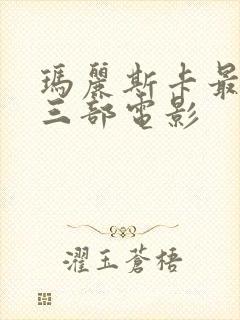 瑪麗斯卡最
三部電影
濯玉蒼梧